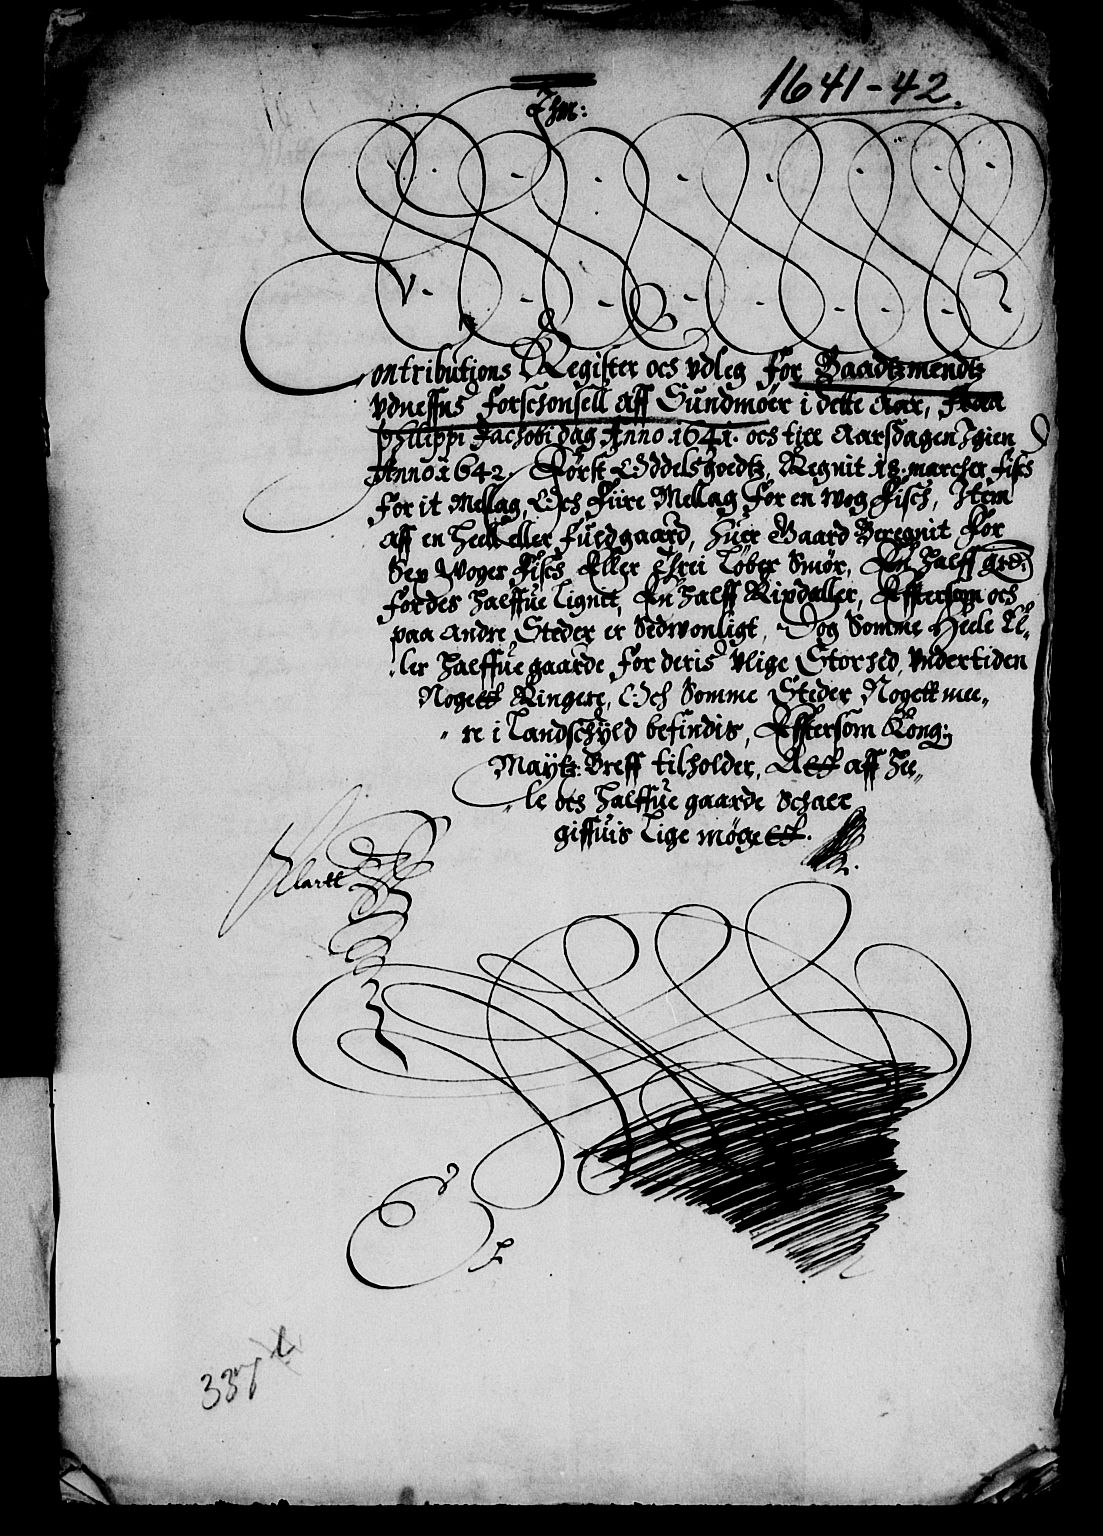 1641-42.
Jhm:
Contributions Register och vdleg for Baadtzmendtz
vdneffns forschonsell aff Sundmøer i dette Aar, Fraa
Philippi Jachobi dag Anno 1641. och till Aarsdagen Igien
Anno 1642. Først Oddelsgoedtz, Regnit 18 marcher fisch
for it Mellag, Och Fiire Mellag for en wog Fisch, Item
aff en heel eller fuedgaard, huer Gaard Beregnit for
Sex Woger Fisch Eller Threi Løber Smør, En halff grd:
fordes halffue lignit, En halff Rixdaller, Efftersom och
paa Andre Steder er Sedwonligt, Dog Somme Heele El,,
ler halffue gaarde for deris vlige Storhed, vndertiden
Nogett Ringere, Och Somme Steder Nogett mee,,
re i Landschyld befindis, Efftersom Kong:
Maytz: Breff tilholder, Att aff hee,,
le och halffue gaarde Schall
giffuis lige møgett.
Klartt
337